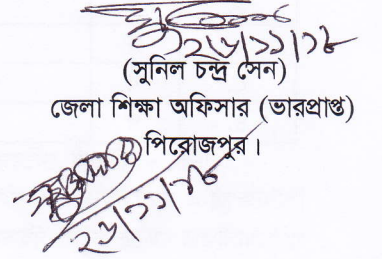 ২৬/১১/১৮
(সুনিল চন্দ্র সেন)
জেলা শিক্ষা অফিসার (ভারপ্রাপ্ত)
পিরোজপুর।
২৬/১১/১৮